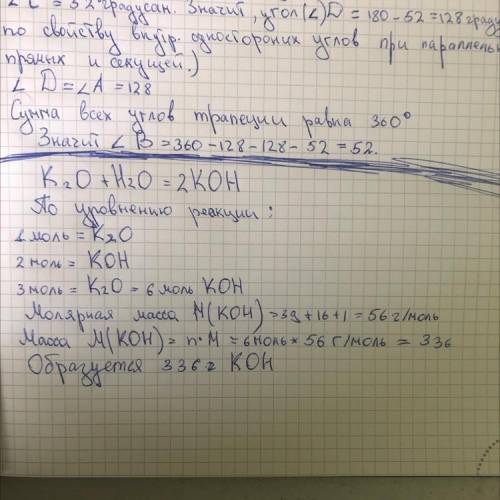 ∠C = 52 градусам. Значит, угол (∠) D = 180 - 52 = 128 граду
по свойству внутр. одностороних углов при параллель
прямых и секущей.)
∠D = ∠A = 128
Сумма всех углов трапеции равна 360°
Значит ∠B = 360 - 128 - 128 - 52 = 52.
K2O + H2O = 2KOH
По уровнению реакции:
1 моль = K2O
2 моль = KOH
3 моль = K2O = 6 моль KOH
Молярная масса M(KOH) = 39 + 16 + 1 = 56 г/моль
Масса M(KOH) = n · M = 6 моль * 56 г/моль = 336
Образуется 336 г KOH